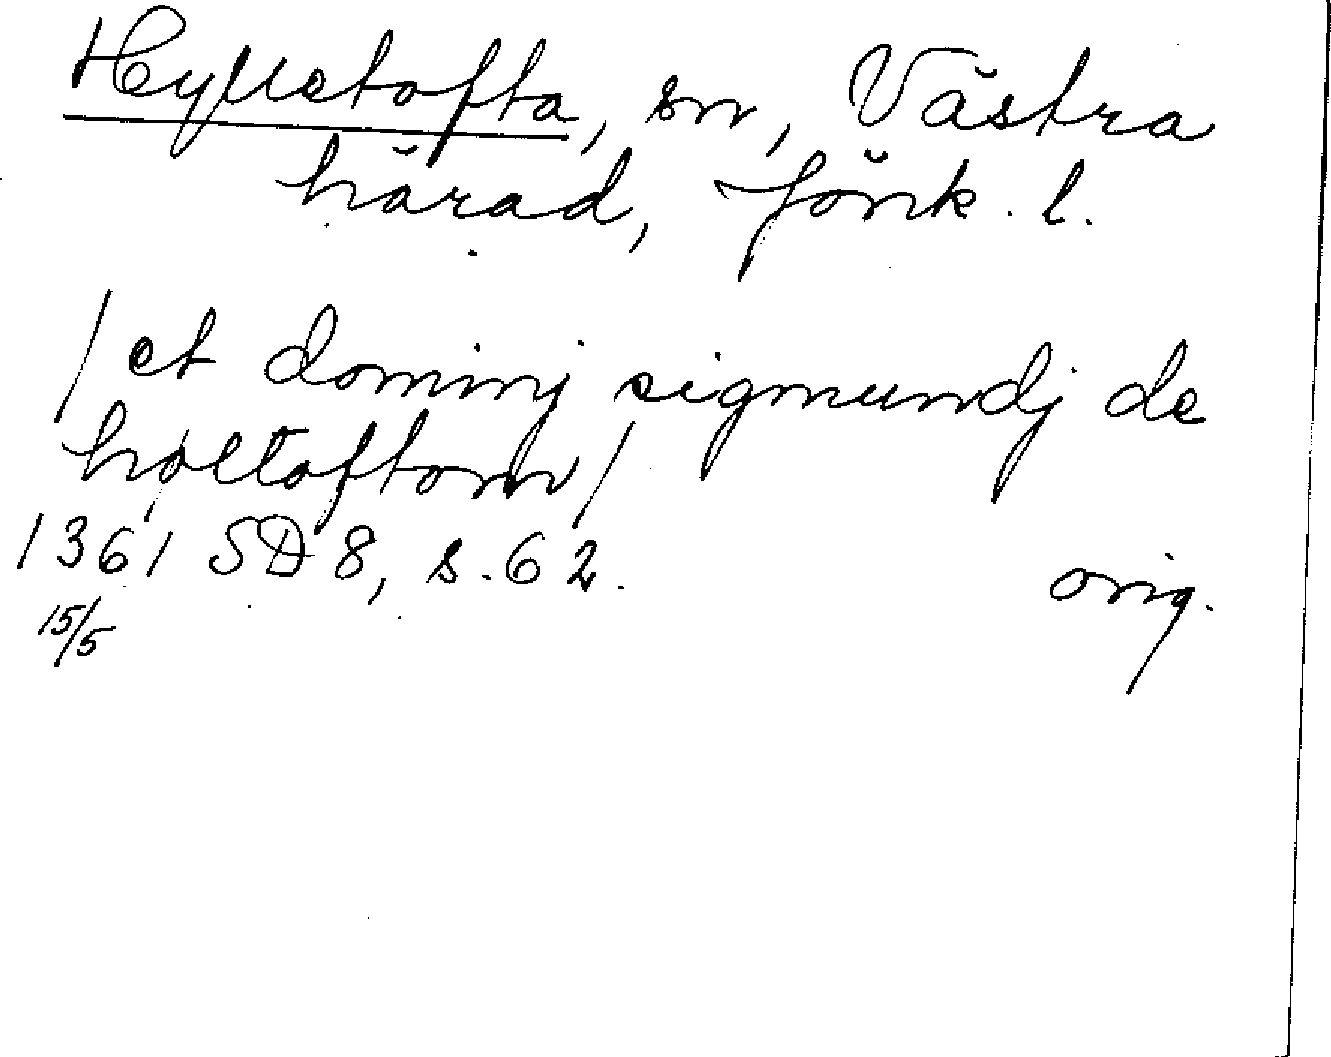 Hylletofta, sn, Västra
härad, Jönk. l.
/et dominj sigmundj de
høltoftom/
1361 SD 8, s. 62. orig.
15/5